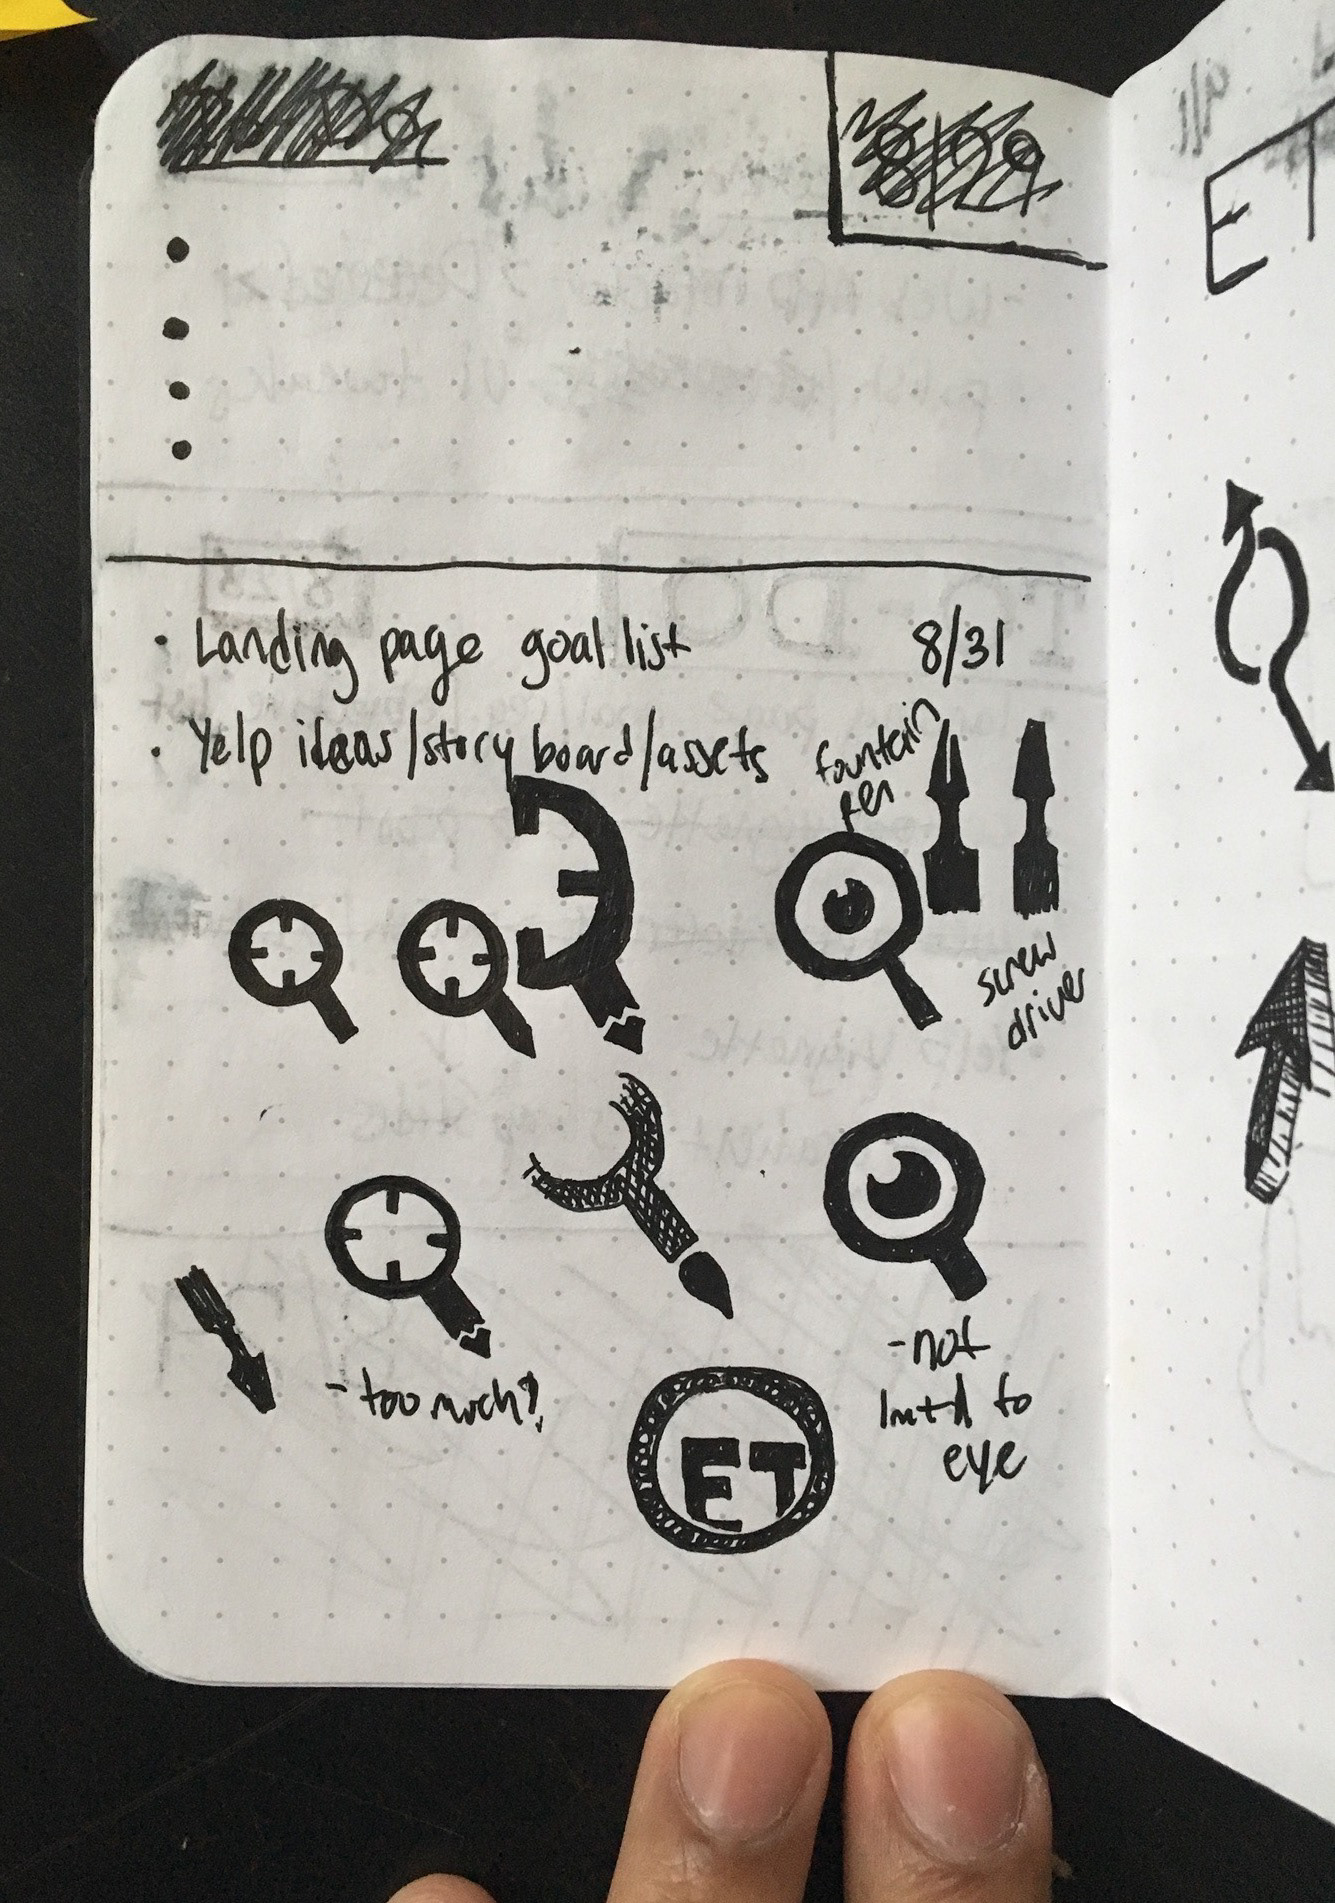 8/29
· Landing page goal list
8/31
· Yelp ideas/story board/assets
fountain
pen
screw
driver
- too much?
- not
lmtd to
eye
ET
ET